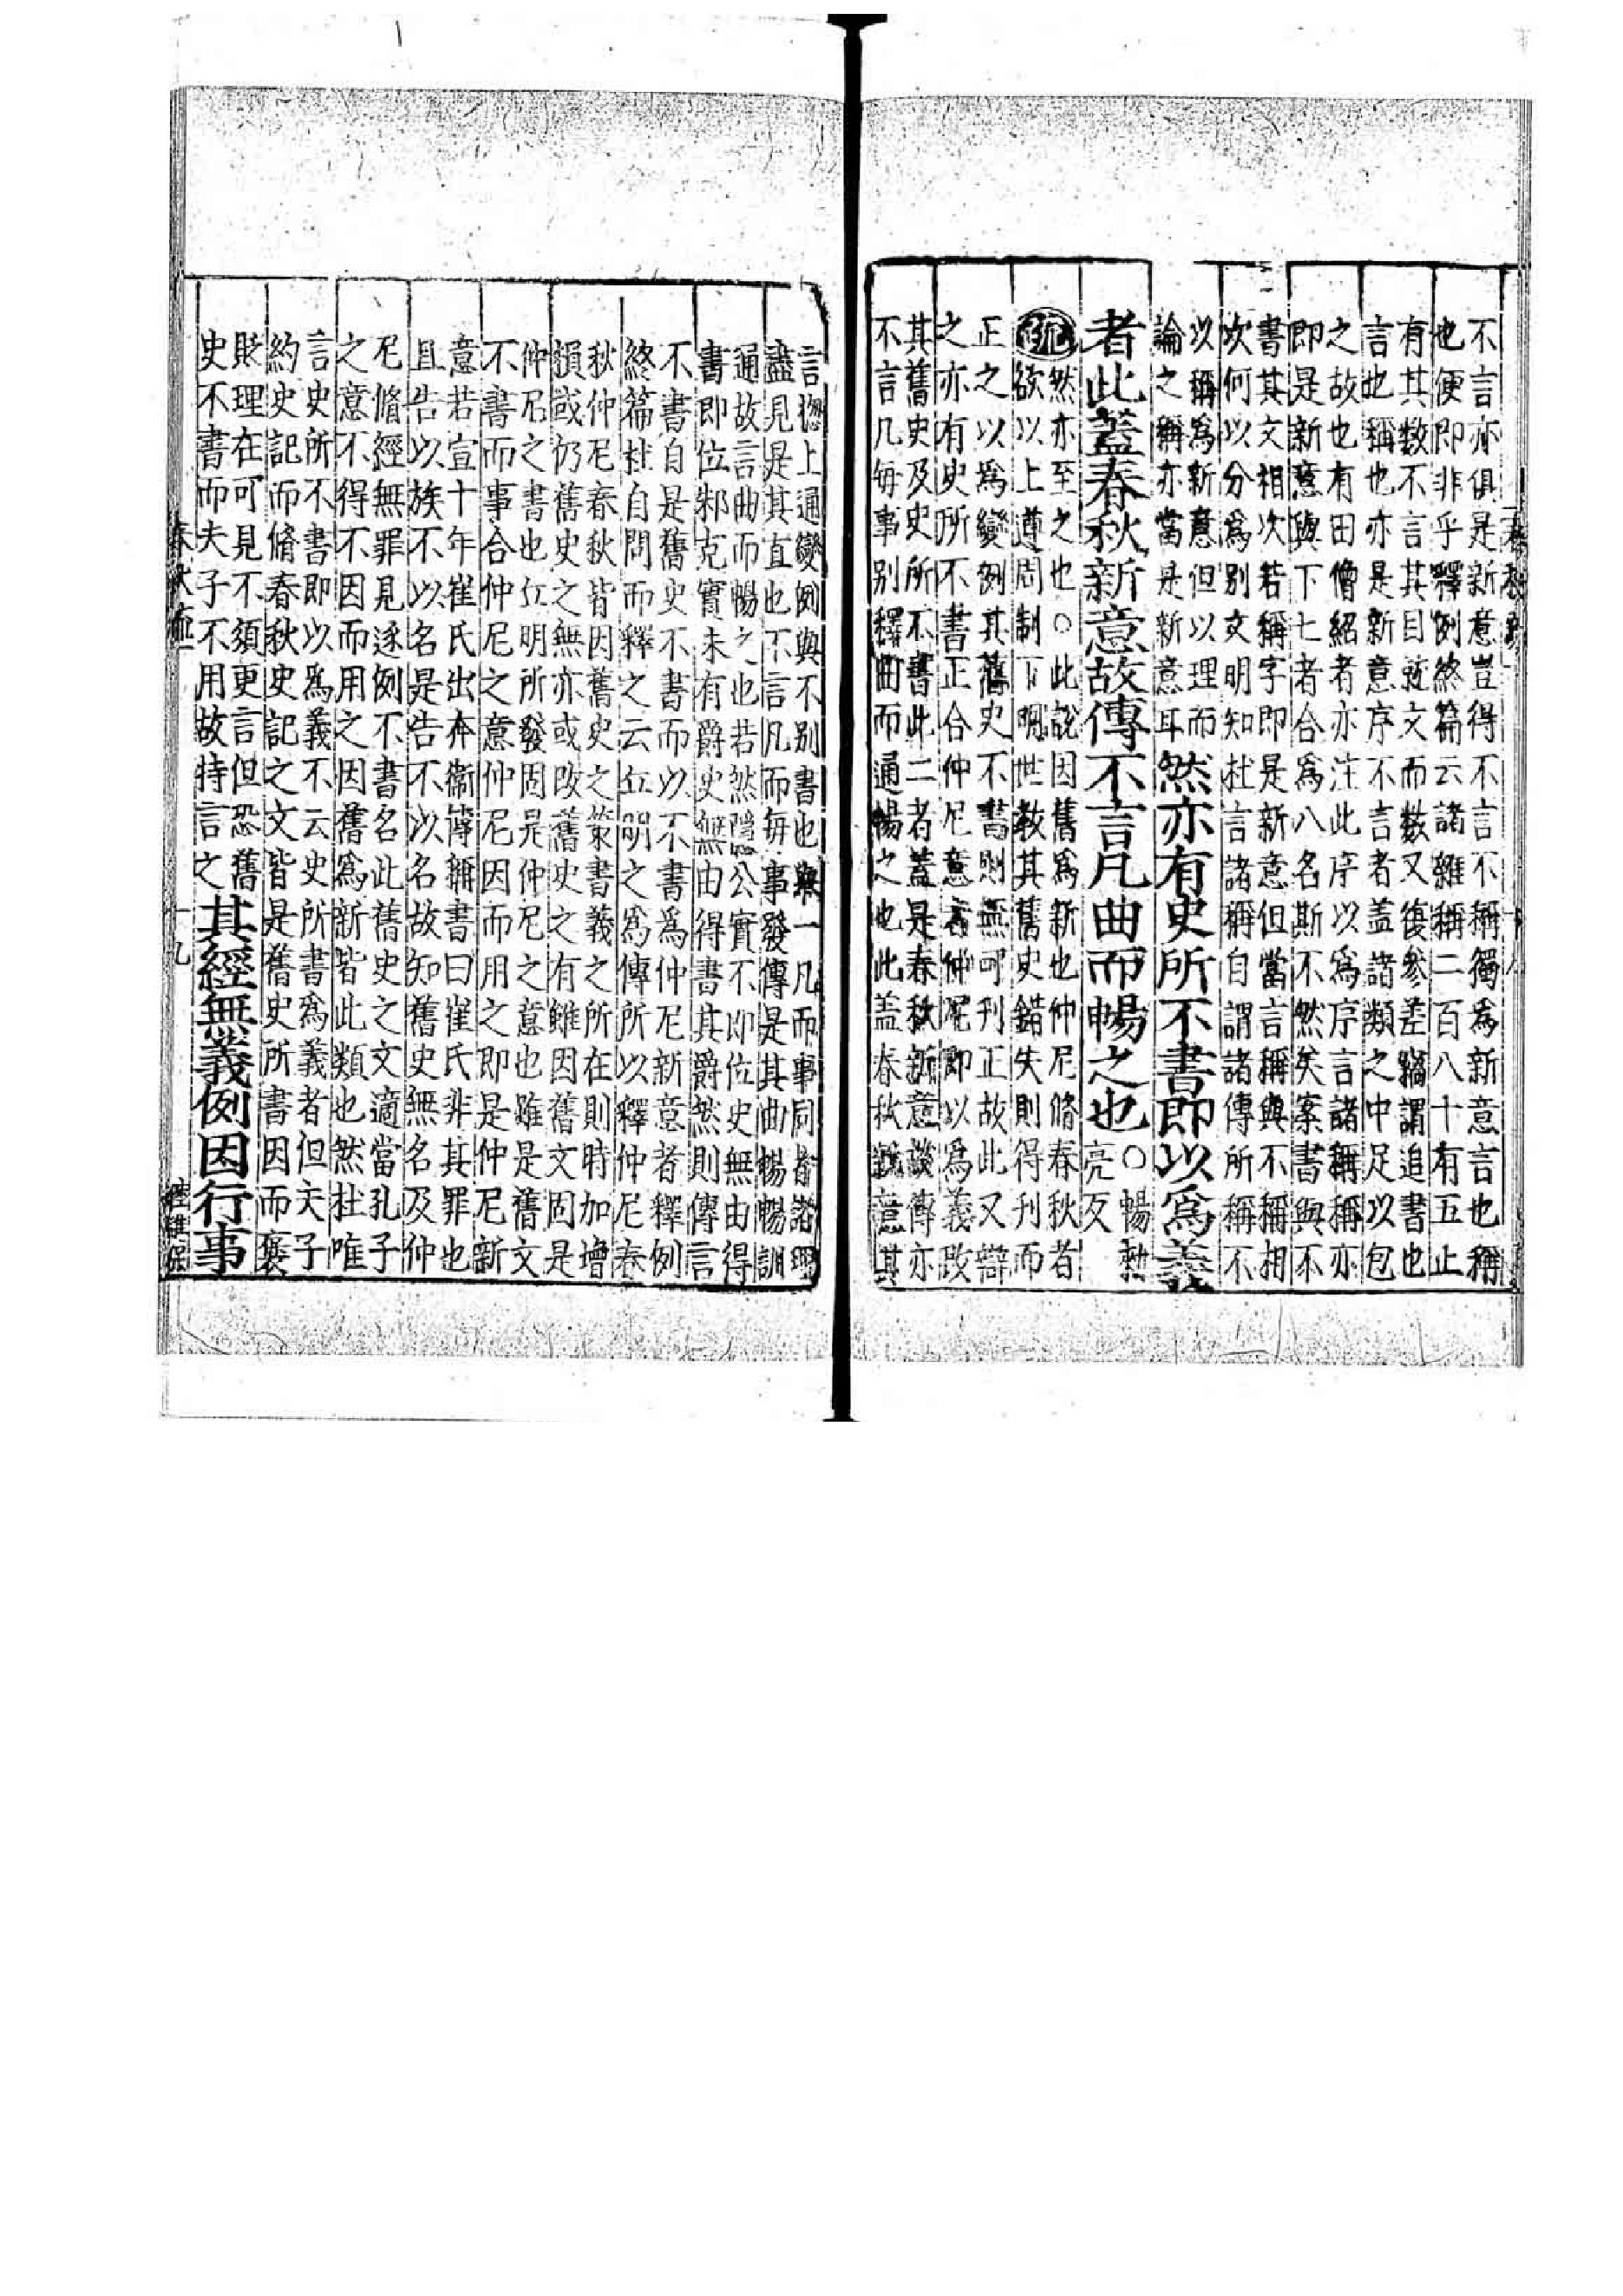 不言亦俱是新意豈得不言不稱獨爲新意言也稱
也便即非乎釋例終篇云諸雜稱二百八十有五止
有其數不言其目就文而數又復參差竊謂追書也
言也稱也亦是新意序不言者蓋諸類之中足以包
之故也有田僧紹者亦注此序以爲序言諸稱稱亦
即是新意與下七者合爲八名斯不然矣案書與不
書其文相次若稱字即是新意但當言稱與不稱相
次何以分爲別文明知杜言諸稱自謂諸傳所稱不
以稱爲新意但以理而
論之稱亦當是新意耳然亦有史所不書即以爲義
者此蓋春秋新意故傳不言凡曲而暢之也○暢勑
亮反
疏然亦至之也○此說因舊爲新也仲尼脩春秋者
欲以上遵周制下明世教其舊史錯失則得刊而
正之以爲變例其舊史不書則無可刊正故此又辯
之亦有史所不書正合仲尼意者仲尼即以爲義改
其舊史及史所不書此二者蓋是春秋新意故傳亦
不言凡每事別釋曲而通暢之也此蓋春秋新意其
言揔上通變例與不別書也與一凡而事同者諸理
盡見是其直也不言凡而每事發傳是其曲暢暢訓
通故言曲而暢之也若然隱公實不即位史無由得
書即位邾克實未有爵史無由得書其爵然則傳言
不書自是舊史不書而以不書爲仲尼新意者釋例
終篇杜自問而釋之云丘明之爲傳所以釋仲尼春
秋仲尼春秋皆因舊史之策書義之所在則時加增
損或仍舊史之無亦或改舊史之有雖因舊文固是
仲尼之書也丘明所發固是仲尼之意也雖是舊文
不書而事合仲尼之意仲尼因而用之即是仲尼新
意若宣十年崔氏出奔衛傳稱書曰崔氏非其罪也
且告以族不以名是告不以名故知舊史無名及仲
尼脩經無罪見逐例不書名此舊史之文適當孔子
之意不得不因而用之因舊爲新皆此類也然杜唯
言史所不書即以爲義不云史所書爲義者但夫子
約史記而脩春秋史記之文皆是舊史所書因而褒
貶理在可見不須更言但恐舊
史不書而夫子不用故特言之其經無義例因行事
春秋疏一 十九